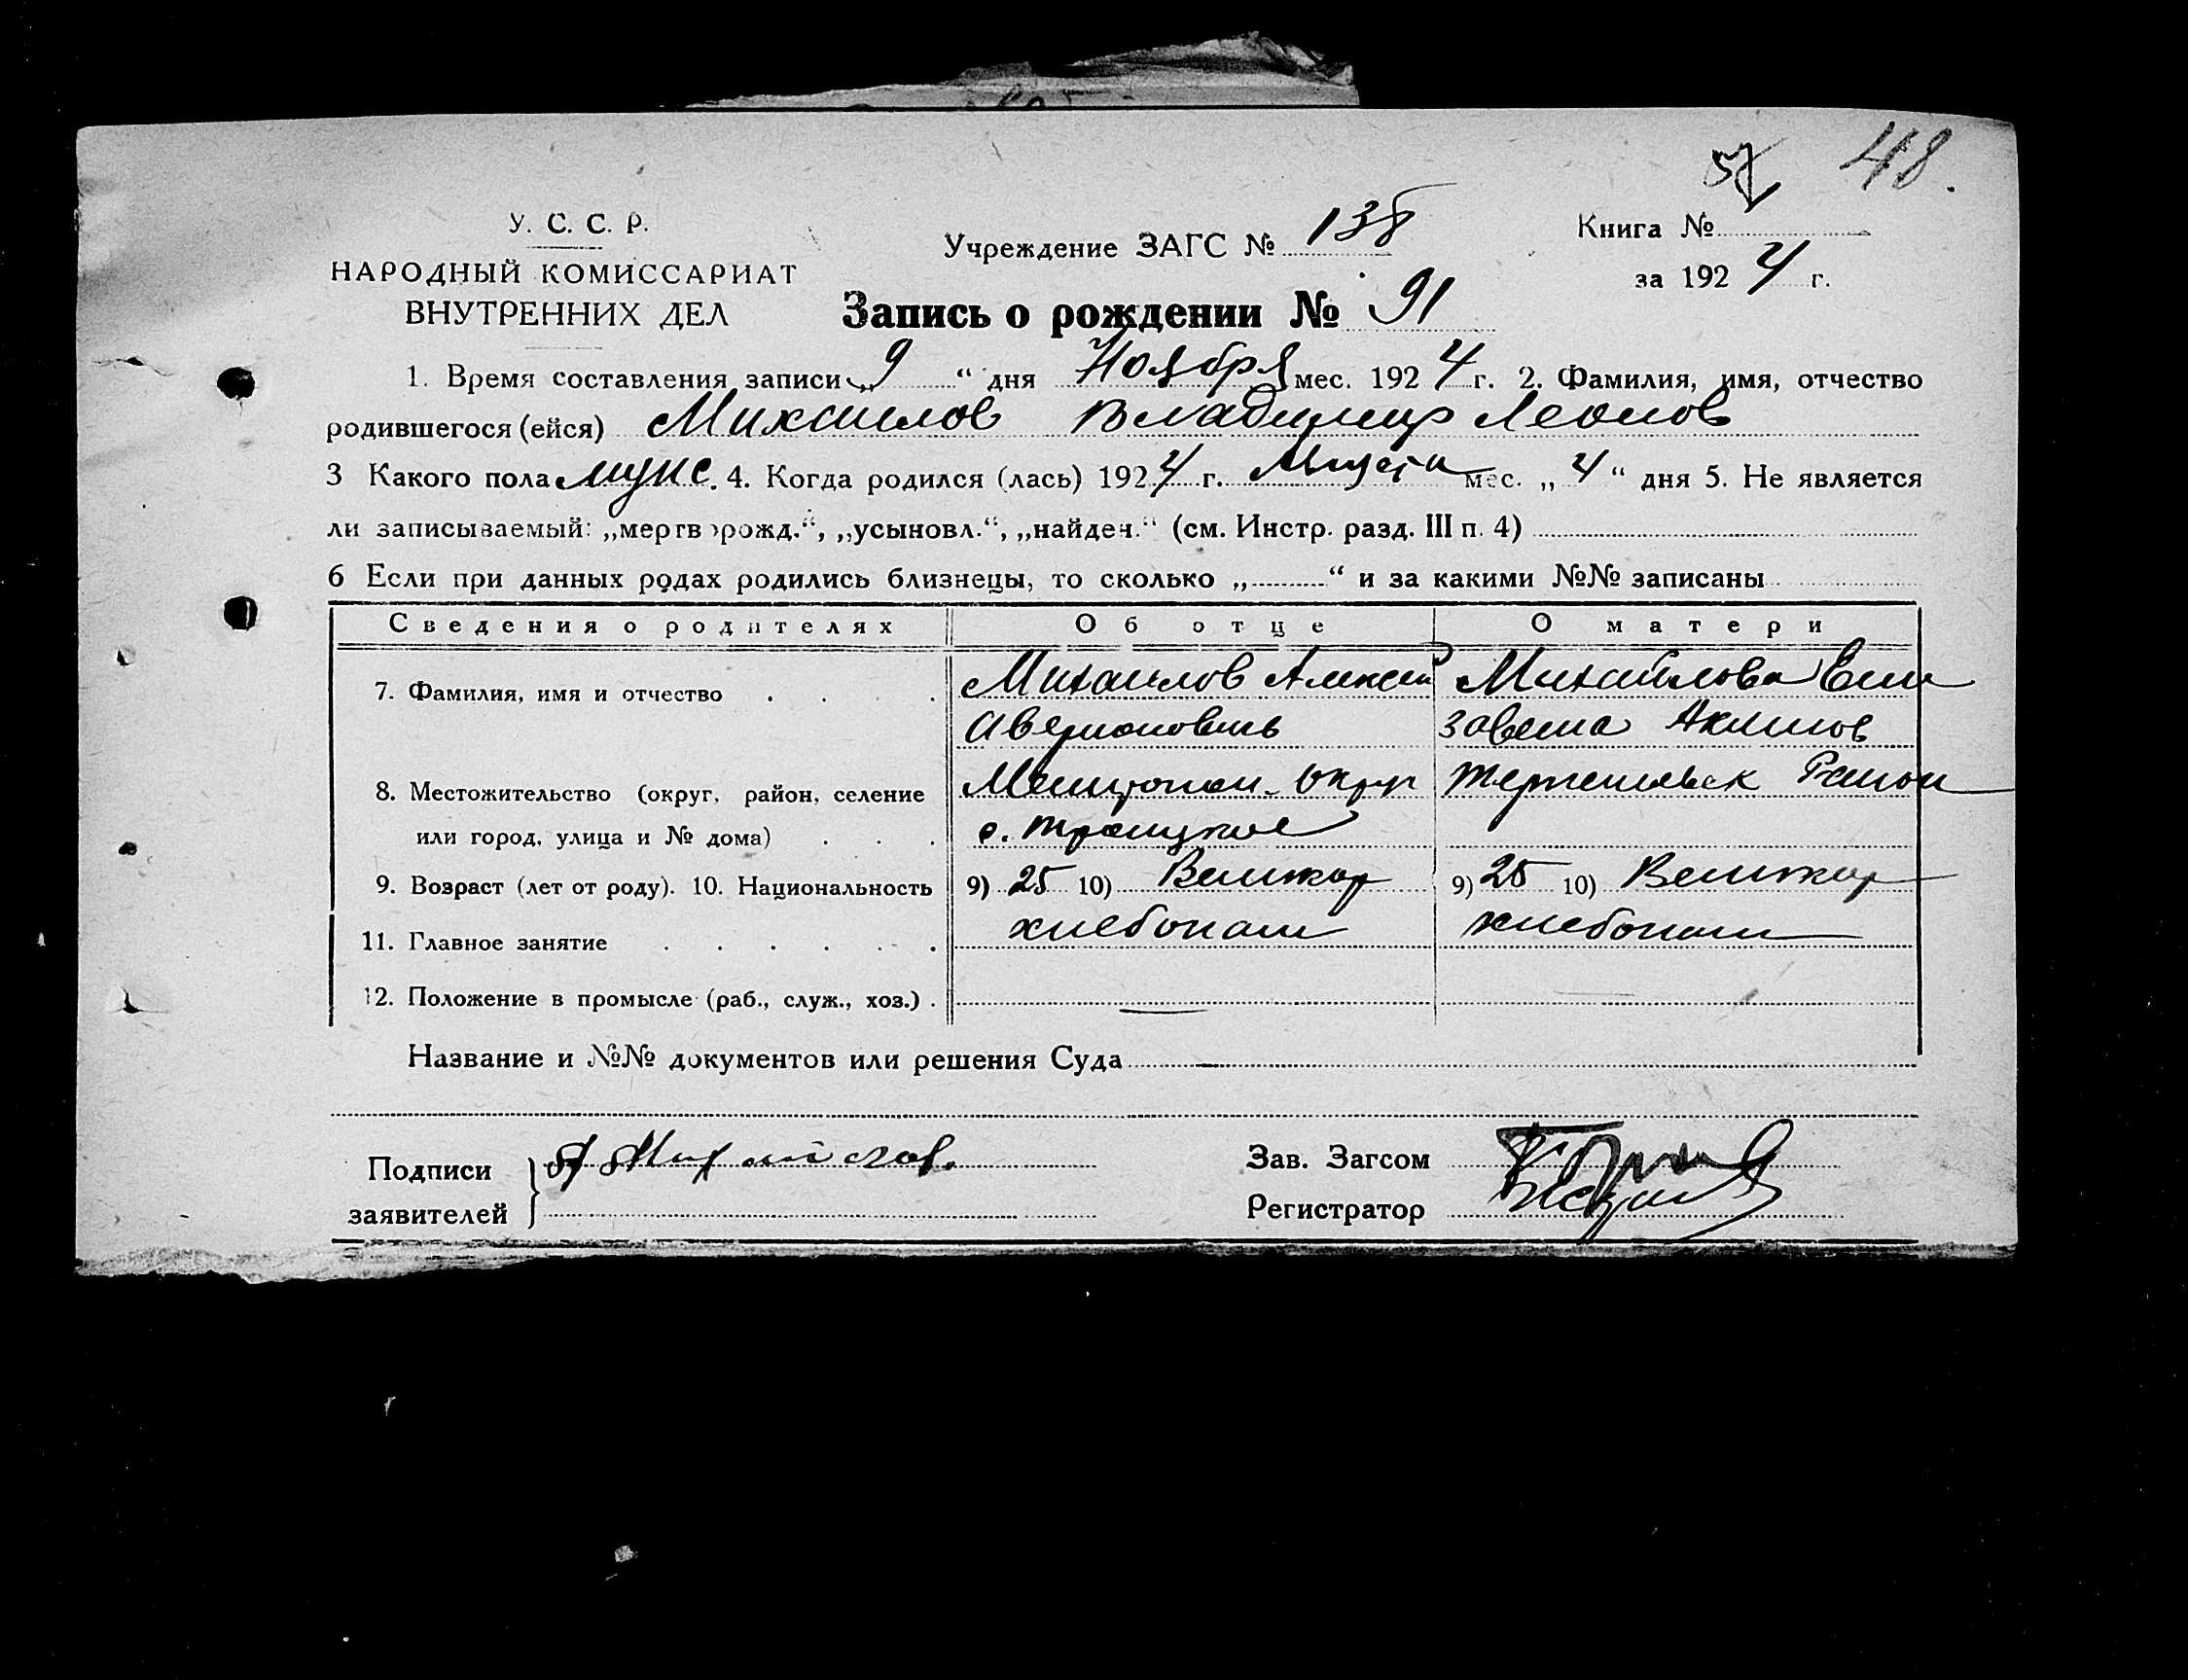 57 48.
У. С. С. Р.
НАРОДНЫЙ КОМИССАРИАТ
ВНУТРЕННИХ ДЕЛ
Учреждение ЗАГС № 138
Книга №
за 1924 г.
Запись о рождении № 91
1. Время составления записи „9“ дня Ноября мес. 1924 г. 2. Фамилия, имя, отчество
родившегося (ейся) Михайлов Владимир
3 Какого пола муж. 4. Когда родился (лась) 1924 г. мес. „4“ дня 5. Не является
ли записываемый: „мертворожд.“, „усыновл.“, „найден.“ (см. Инстр. разд. III п. 4)
6 Если при данных родах родились близнецы, то сколько „ “ и за какими №№ записаны
Сведения о родителях Об отце О матери
7. Фамилия, имя и отчество . . . . Михайлов Алексей Михайлова Ели
Аверионович завета Акимов
8. Местожительство (округ, район, селение Мелитопол. Округ Район
или город, улица и № дома) . . . с. Троицкое
9. Возраст (лет от роду). 10. Национальность 9) 25 10) Великор 9) 25 10) Великор
11. Главное занятие . . . . . . хлебопаш хлебопаш
12. Положение в промысле (раб., служ., хоз.) . —
Название и №№ документов или решения Суда
Подписи
заявителей
А Михайлов.
Зав. Загсом
Регистратор